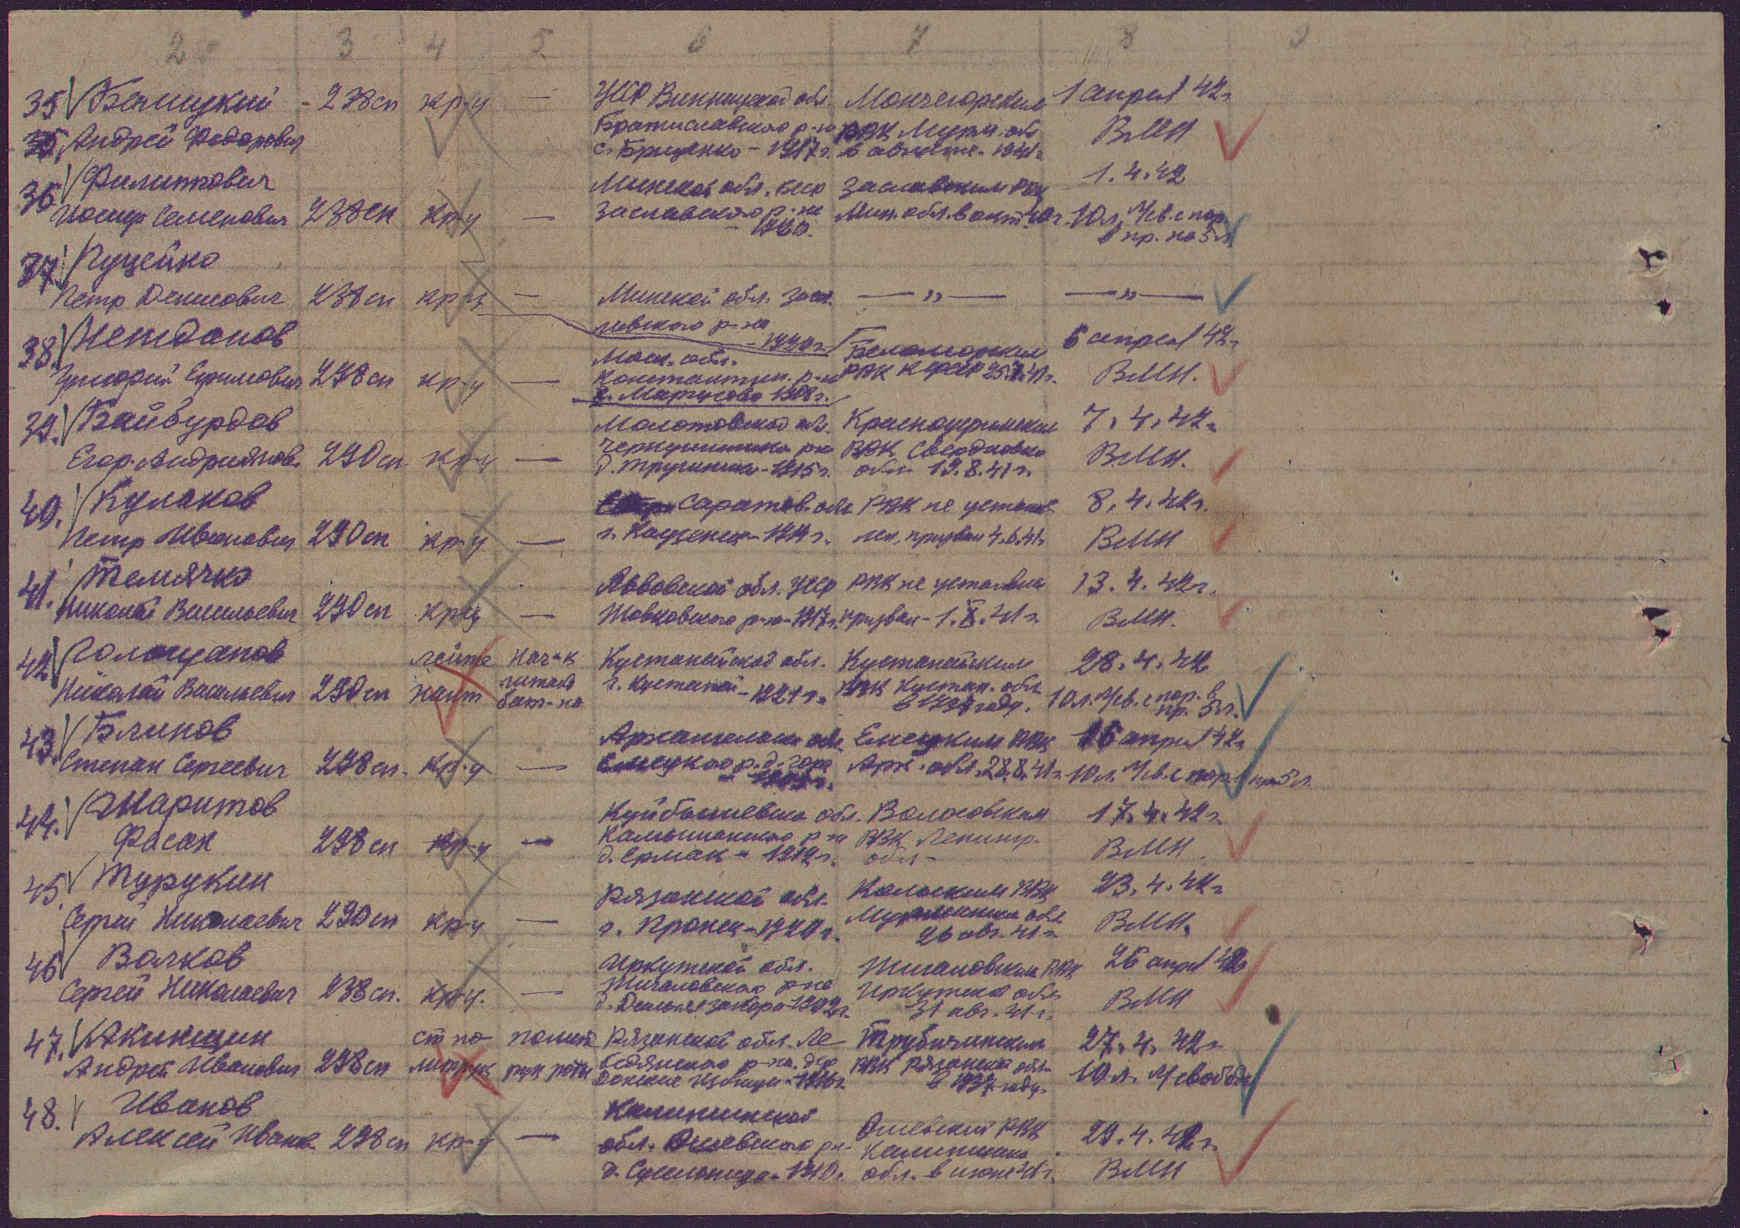 2 3 4 5 6 7 8 9
35 Белицкий - 238 сп кр-ц — УССР Винницкой обл. Мончегорским 1 апреля 42 г.
Андрей Федорович Братиславского р-на РВК Мурм. обл. ВМН
с. Гриценко - 1917 г. в августе 1941 г.
36. Филиппович Минской обл. БССР Заславским РВК 1.4.42
Иосиф Семенович 238 сп кр-ц — Заславского р-на Мин. обл. в окт. 40 г. 10 л. л/св. с пор.
- 1920. в пр. на 5 л.
37. Пуцейко
Петр Денисович 238 сп кр-ц — Минской обл. Зас- — " — — " —
лавского р-на
- 1920 г.
38. Нежданов 6 апреля 42 г.
Моск. обл. Беломорским
Григорий Ефимович 298 сп кр-ц — Константин. р-на РВК КФССР 25.7.41 г. ВМН.
д. Марусово 1908 г.
39. Байбурдов Молотовской обл. Красноуфимским 7.4.42 г.
Егор Андриянов. 290 сп кр-ц — Чернушинского р-на РВК Свердловск. ВМН.
д. Трушники - 1915 г. обл. 19.8.41 г.
40. Кулаков Саратов. обл. РВК не установ- 8.4.42 г.
Петр Иванович 290 сп кр-ц — лен, призван 4.6.41 г. ВМН
41. Темлячко Львовской обл. УССР РВК не установлен 13.4.42 г.
Николай Васильевич 290 сп кр-ц — Жовковского р-на - 1917 г. призван - 1.X.41 г. ВМН.
42. Голощапов лейте нач-к Кустанайской обл. Кустанайским 28.4.42
Николай Васильевич 290 сп нант штаба г. Кустанай - 1921 г. РВК Кустан. обл. 10 л. л/св. с пор. в
бат-на в 1939 году. пр. 5 л.
43. Блинов Архангельской обл. Емецким РВК 16 апреля 42 г.
Степан Сергеевич 298 сп. кр-ц — Емецкого р. д. Гора Арх. обл. 28.8.41 г. 10 л. л/св. с пор. в пр. 5 л.
44. Шарипов Куйбышевской обл. Волосовским 17.4.42 г.
Фасах 298 сп кр-ц — Камышлинского р-на РВК Ленингр. ВМН.
д. Ермак - 1919 г. обл. -
45. Турукин Рязанской обл. Кольским РВК 23.4.42 г.
Сергей Николаевич 290 сп кр-ц — г. Пронск - 1920 г. Мурманской обл. ВМН.
26 авг. 41 г.
46 Волков Иркутской обл. Жигаловским РВК 26 апрел 42 г.
Сергей Николаевич 238 сп. кр-ц. — Жигаловского р-на Иркутской обл. ВМН
1902 г. 31 авг. 41 г.
47. Акиншин ст по полит Рязанской обл. Ле- Трубетчинским 27.4.42 г.
Андрей Иванович 298 сп литрук рук роты бедянского р-на. дер. РВК Рязанской обл. 10 л. л/свободы
Донские Избищи - 1916 г. в 1937 году.
48. Иванов Калининской
Алексей Иванов. 298 сп кр-ц — обл. Оленевского р-на Оленевский РВК 29.4.42 г.
Калининской
1910 г. обл. в июне 41 г. ВМН